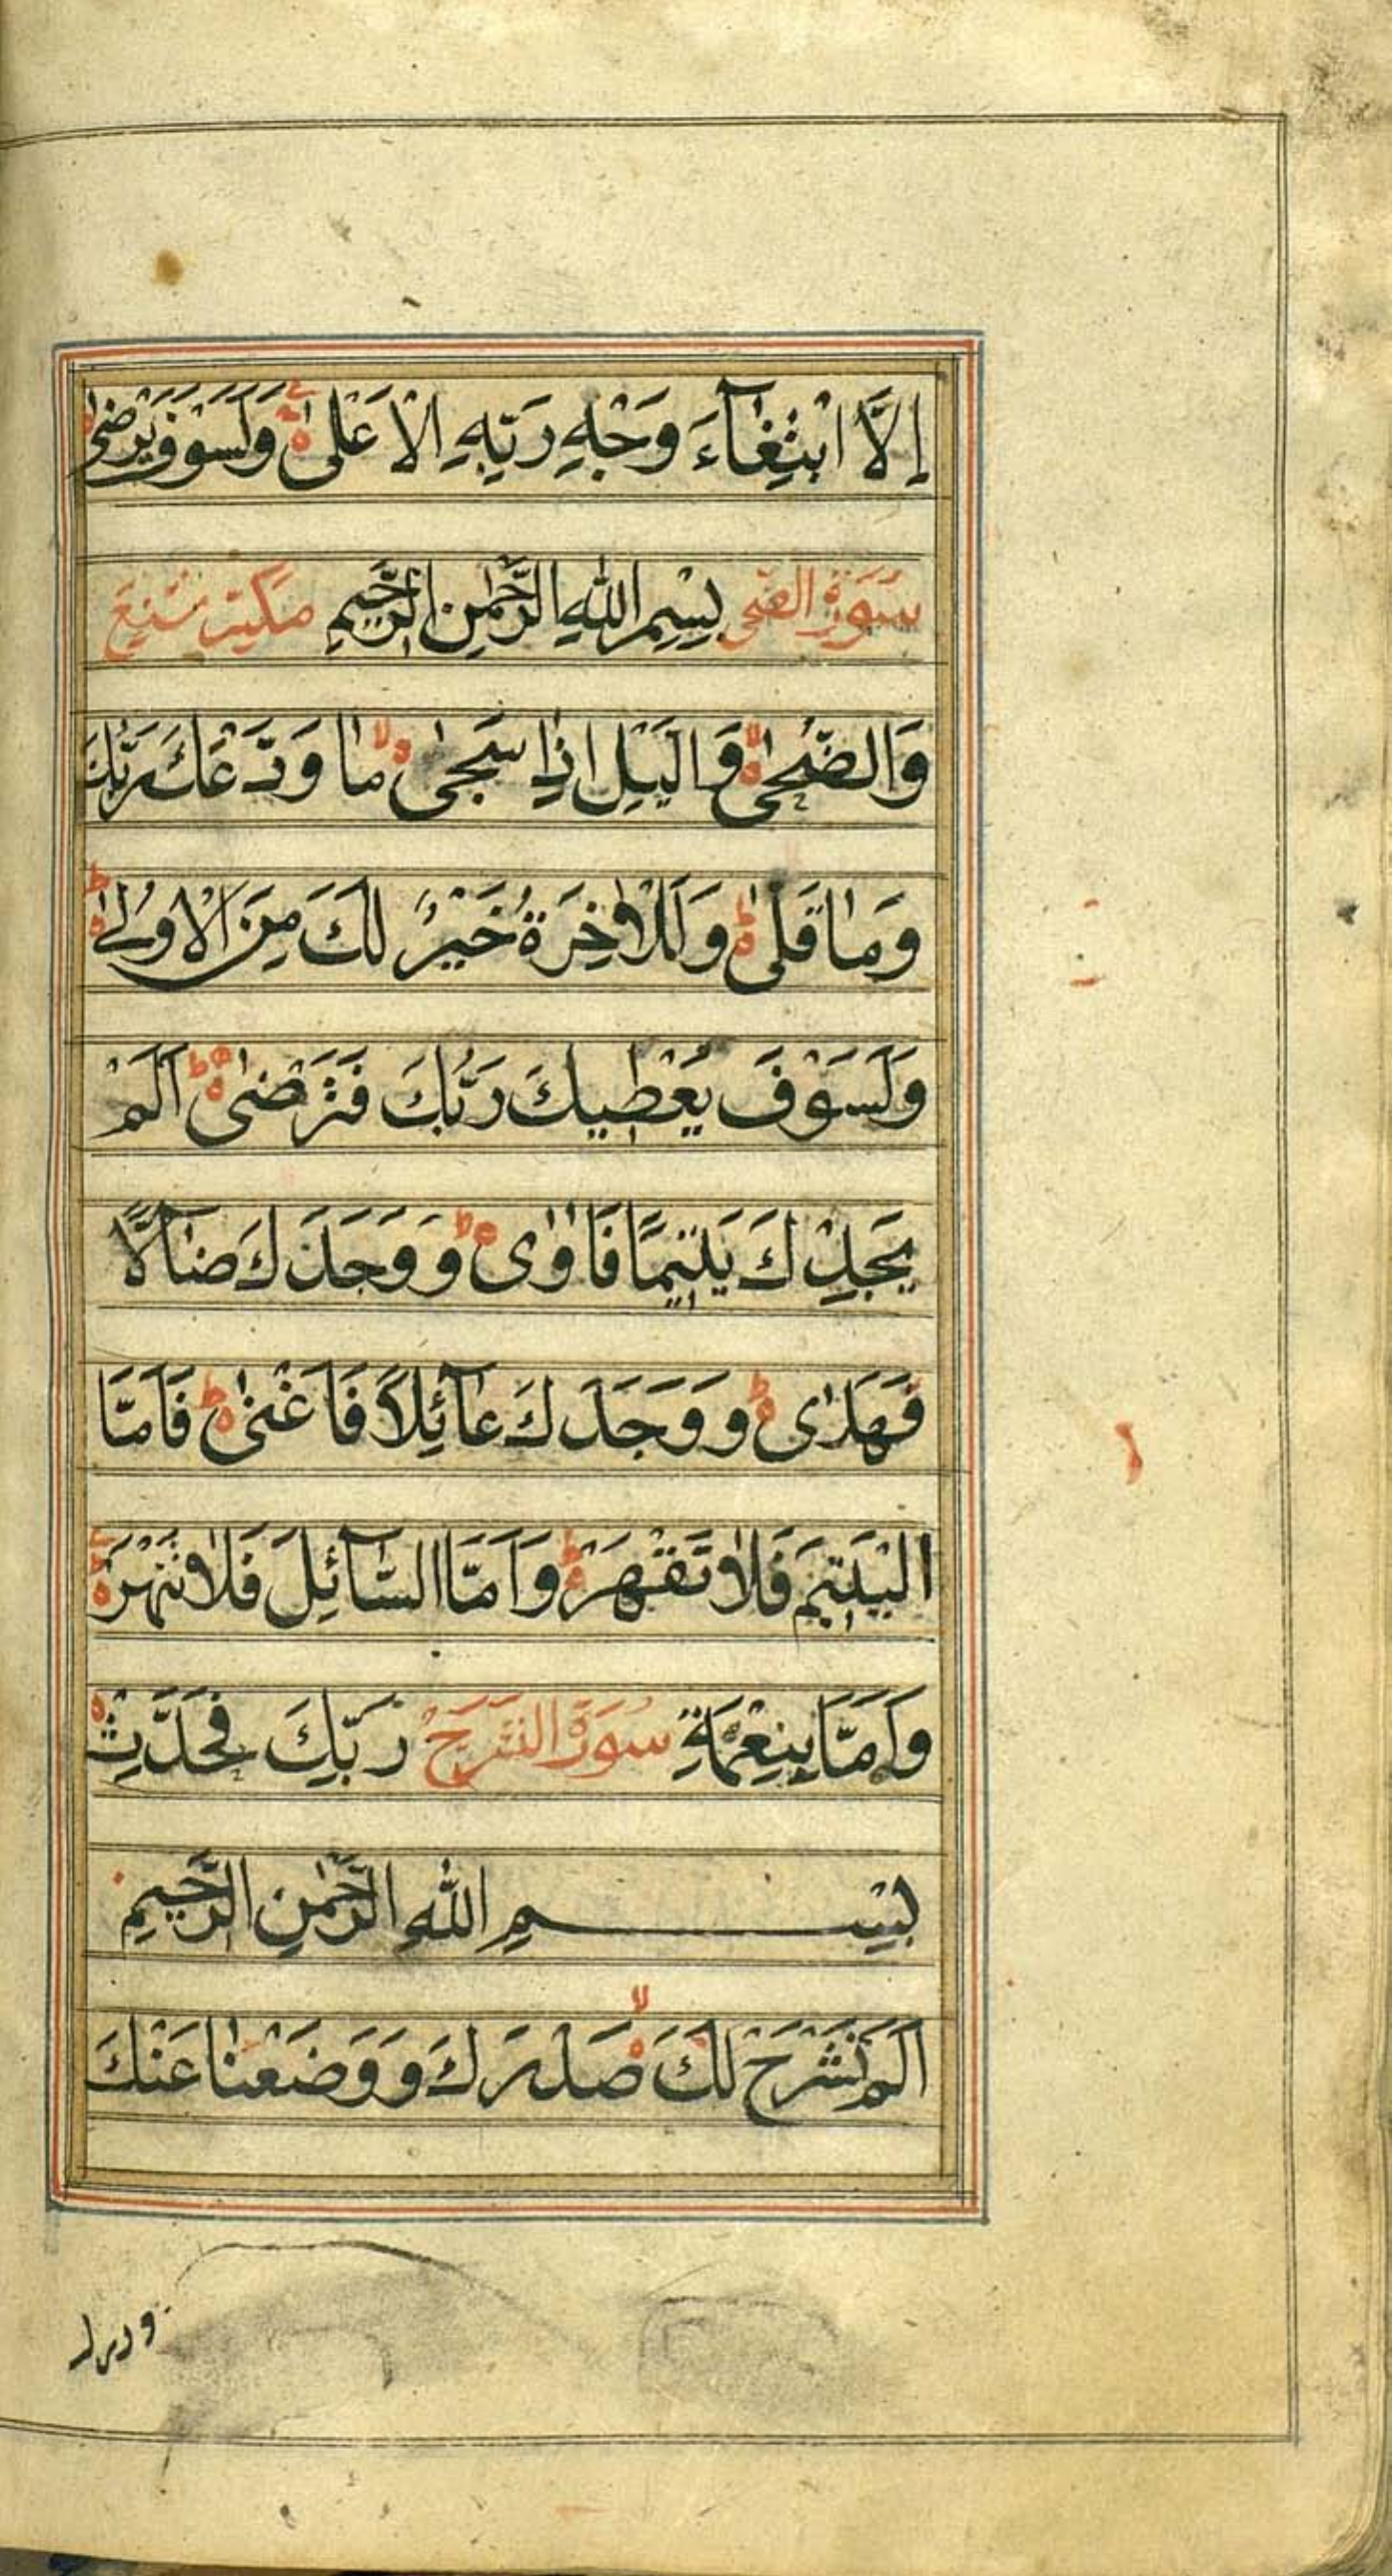 إِلَّا ابْتِغَآءَ وَجْهِ رَبِّهِ الْاَعْلٰى وَلَسَوْفَ يَرْضٰى
سُوْرَةُ الضُّحٰى بِسْمِ اللّٰهِ الرَّحْمٰنِ الرَّحِيْمِ مَكِّيَّة
وَالضُّحٰى وَالَّيْلِ اِذَا سَجٰى مَا وَدَّعَكَ رَبُّكَ
وَمَا قَلٰى وَلَلْاٰخِرَةُ خَيْرٌ لَّكَ مِنَ الْاُوْلٰى
وَلَسَوْفَ يُعْطِيكَ رَبُّكَ فَتَرْضٰى اَلَمْ
يَجِدْكَ يَتِيْمًا فَاٰوٰى وَوَجَدَكَ ضَآلًّا
فَهَدٰى وَوَجَدَكَ عَآئِلًا فَاَغْنٰى فَاَمَّا
الْيَتِيْمَ فَلَا تَقْهَرْ وَاَمَّا السَّآئِلَ فَلَا تَنْهَرْ
وَاَمَّا بِنِعْمَةِ سُوْرَةُ النشَرَحْ رَبِّكَ فَحَدِّثْ
بِسْمِ اللّٰهِ الرَّحْمٰنِ الرَّحِيْمِ
اَلَمْ نَشْرَحْ لَكَ صَدْرَكَ وَوَضَعْنَا عَنْكَ